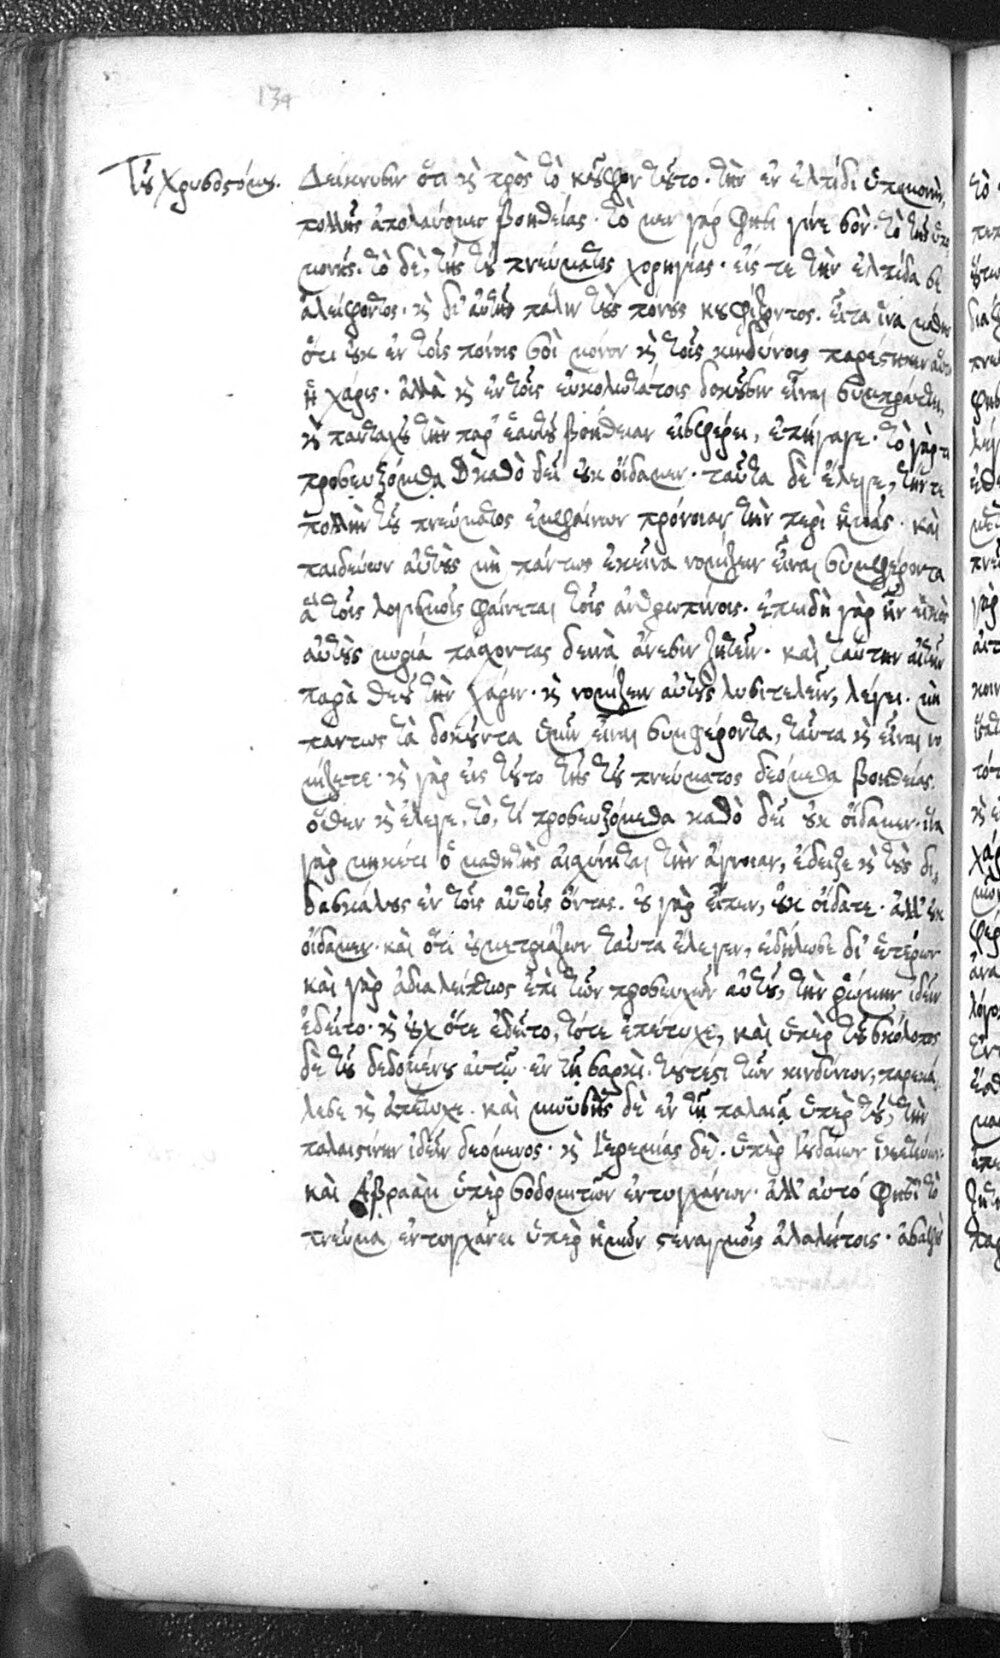 134
Τοῦ Χρυσοστόμου. Δείκνυσιν ὅτι καὶ πρὸς τὸ κοῦφον τοῦτο. τὴν ἐν ἐλπίδι ὑπομονὴν,
πολλῆς ἀπολαύομεν βοηθείας. τὸ μεν γάρ φησι γίνε σὸν. τὸ τῆς ὑπο
μονῆς. τὸ δὲ, τῆς τοῦ πνεύματος χορηγίας. εἰς τε τὴν ἐλπίδα σε
ἀλείφοντος. καὶ δι' αὐτῆς πάλιν τοὺς πόνους κουφίζοντος. εἶτα ἵνα μάθης
ὅτι οὐκ ἐν τοῖς πόνοις σοὶ μόνον καὶ τοῖς κινδύνοις παρέστηκεν αὕτη
ἡ χάρις. ἀλλὰ καὶ ἐν τοῖς εὐκολωτάτοις δοκοῦσιν εἶναι συμπράττει,
καὶ πανταχοῦ τὴν παρ' ἑαυτῆς βοήθειαν εἰσφέρει, ἐπήγαγε. τὸ γὰρ τι
προσευξόμεθα καθὸ δεῖ οὐκ οἴδαμεν. ταῦτα δὲ ἔλεγε, τήν τε
πολλὴν τοῦ πνεύματος ἐμφαίνων πρόνοιαν τὴν περὶ ἡμᾶς. καὶ
παιδεύων αὐτοὺς μὴ πάντως ἐκεῖνα νομίζειν εἶναι συμφέροντα
ἃ τοῖς λογισμοῖς φαίνεται τοῖς ἀνθρωπίνοις. ἐπειδὴ γὰρ ἦν εἰκὸς
αὐτοὺς μυρία πάσχοντας δεινὰ ἄνεσιν ζητεῖν. καὶ ταύτην αἰτεῖν
παρὰ θεοῦ τὴν χάριν. καὶ νομίζειν αὐτοῖς λυσιτελεῖν, λέγει. μὴ
πάντως τὰ δοκοῦντα ὑμῖν εἶναι συμφέροντα, ταῦτα καὶ εἶναι νο
μίζετε. καὶ γὰρ εἰς τοῦτο τῆς τοῦ πνεύματος δεόμεθα βοηθείας.
ὅθεν καὶ ἔλεγε, τὸ, τί προσευξόμεθα καθὸ δεῖ οὐκ οἴδαμεν. ἵνα
γὰρ μηκέτι ὁ μαθητὴς αἰσχύνηται τὴν ἄγνοιαν, ἔδειξε καὶ τοὺς δι
δασκάλους ἐν τοῖς αὐτοῖς ὄντας. οὐ γὰρ εἶπεν, οὐκ οἴδατε. ἀλλ' οὐκ
οἴδαμεν. καὶ ὅτι οὐ μετριάζων ταῦτα ἔλεγεν, ἐδήλωσε δι' ἑτέρων
καὶ γὰρ ἀδιαλείπτως ἐπὶ τῶν προσευχῶν αὐτοῦ, τὴν ῥώμην ἰδεῖν
ἐδεῖτο. καὶ οὐχ ὅτε ἐδεῖτο, τότε ἐπέτυχε, καὶ ὑπὲρ τοῦ σκόλοπος
δὲ τοῦ δεδομένου αὐτῷ ἐν τῇ σαρκὶ. τουτέστι τῶν κινδύνων, παρεκά
λεσε καὶ ἀπέτυχε. καὶ μωϋσῆς δὲ ἐν τῇ παλαιᾷ ὑπὲρ τοῦ, τὴν
παλαιστίνην ἰδεῖν δεόμενος. καὶ Ἰερεμίας δὲ. ὑπὲρ Ἰουδαίων ἱκετεύων.
καὶ Ἀβραὰμ ὑπὲρ σοδομιτῶν ἐντυγχάνων. ἀλλ' αὐτό φησὶ τὸ
πνεῦμα ἐντυγχάνει ὑπὲρ ἡμῶν στεναγμοῖς ἀλαλήτοις. ἀσαφὲς